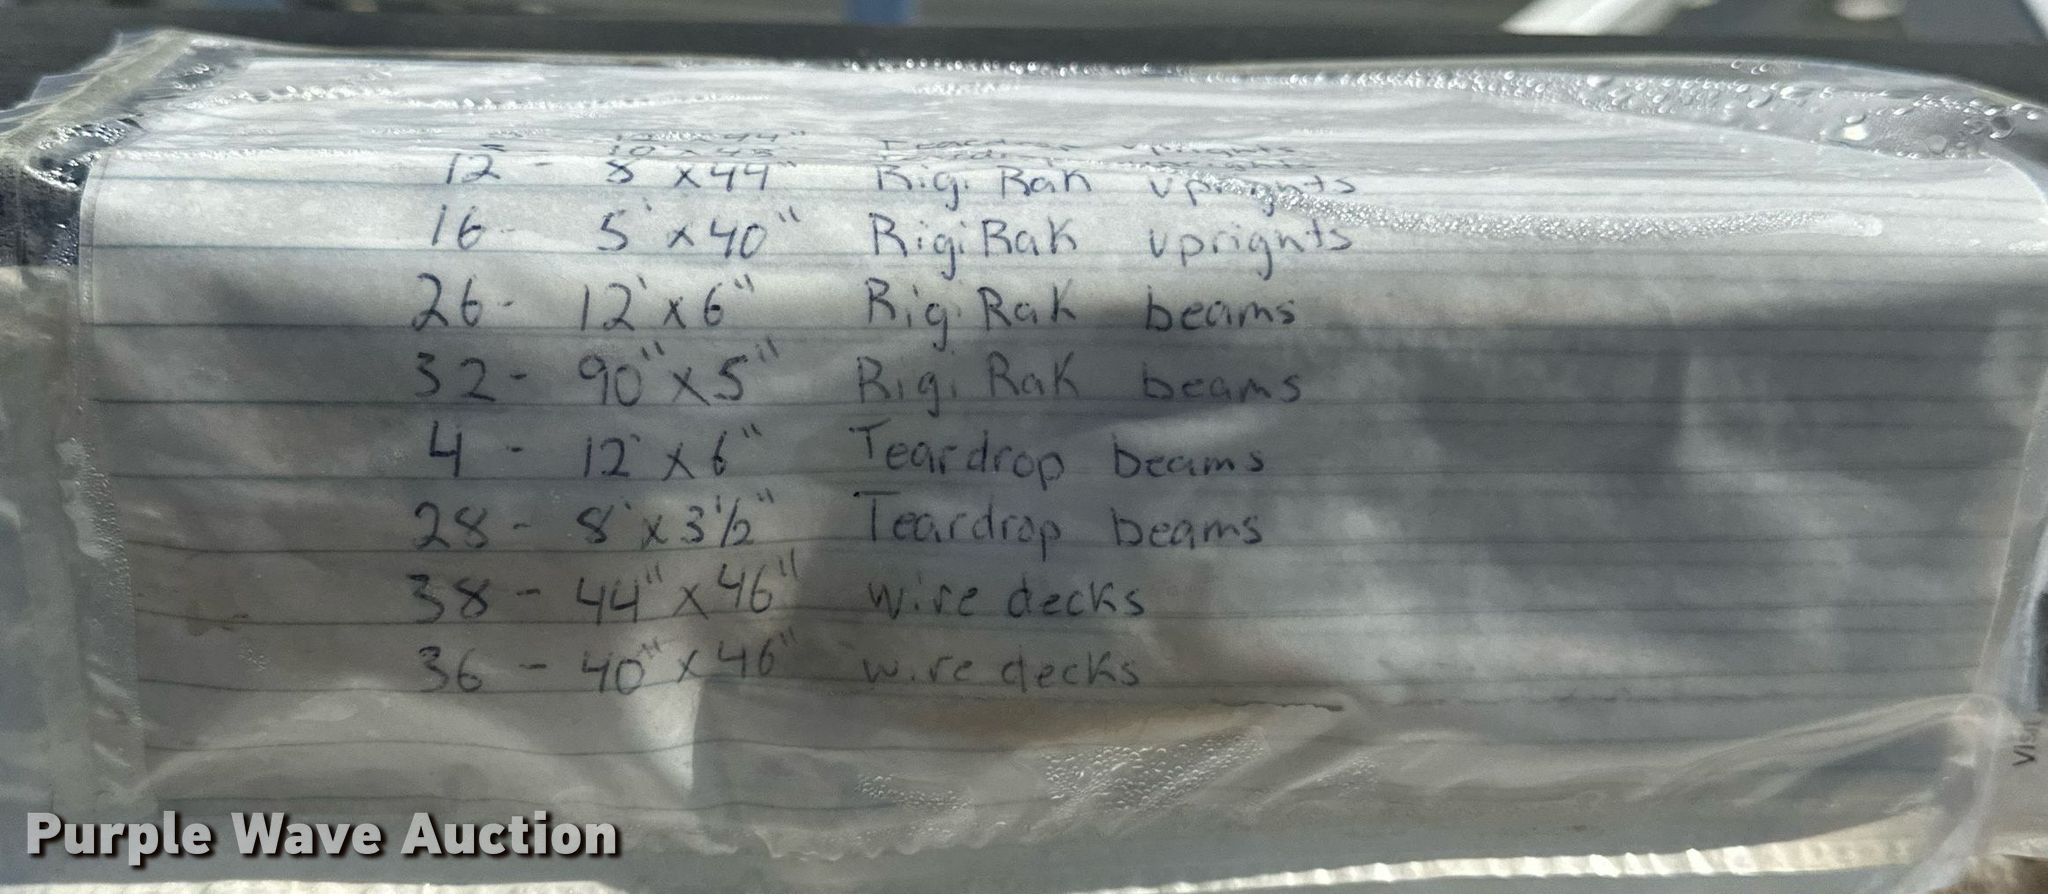 12 - 8' x 44" Rigi Rak uprights
16 - 5' x 40" Rigi Rak uprights
26 - 12' x 6" Rigi Rak beams
32 - 90" x 5" Rigi Rak beams
4 - 12' x 6" Teardrop beams
28 - 8' x 3 1/2" Teardrop beams
38 - 44" x 46" wire decks
36 - 40" x 46" wire decks
Purple Wave Auction